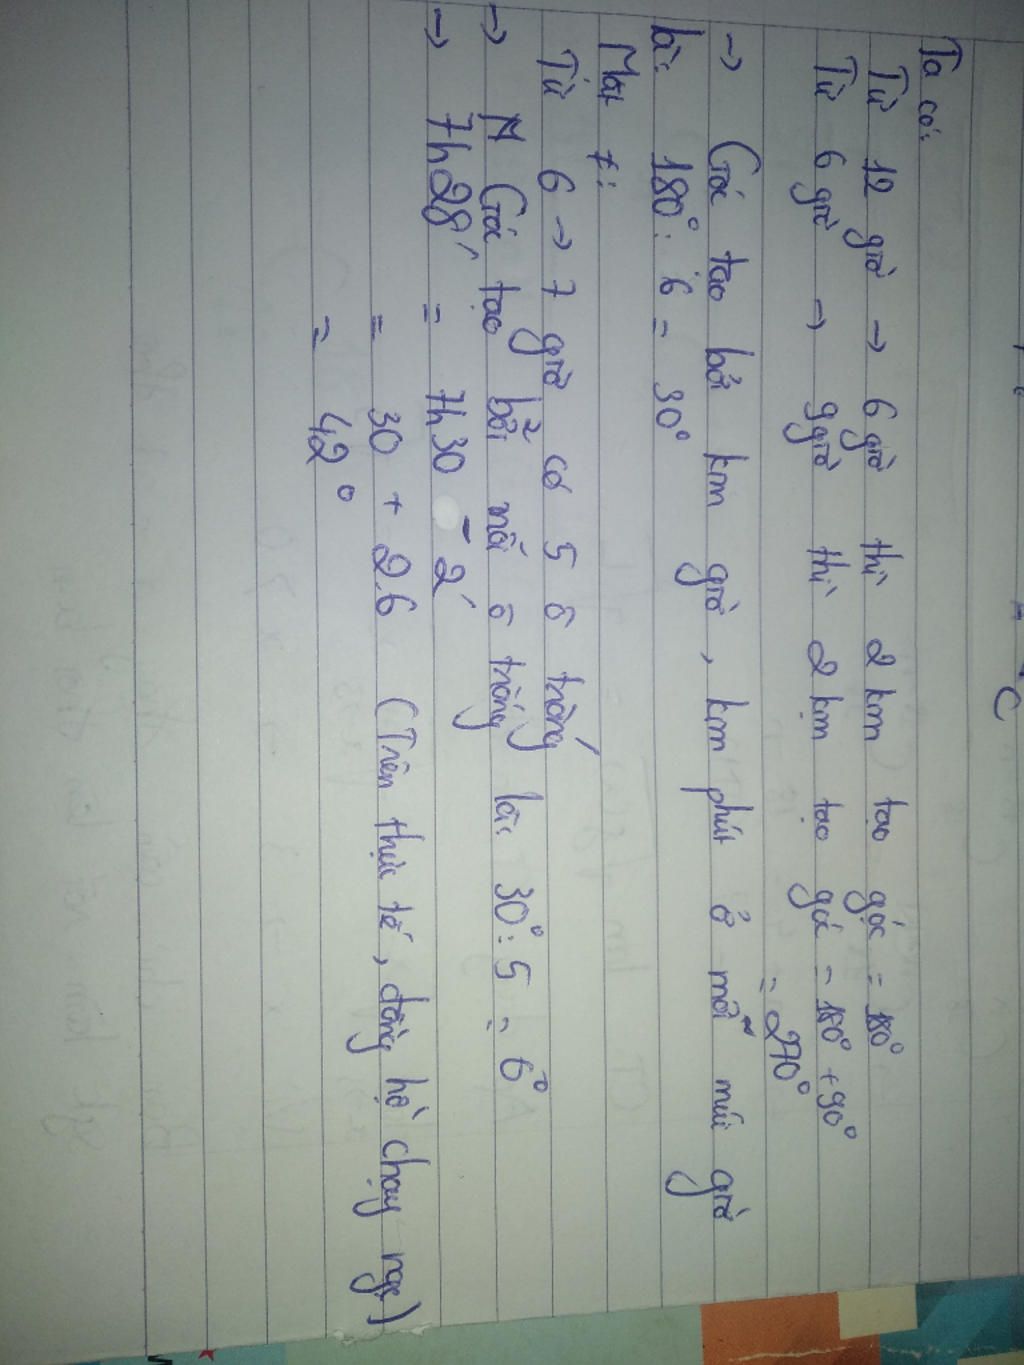 C
Ta có:
Từ 12 giờ → 6 giờ thì 2 kim tạo góc = 180°
Từ 6 giờ → 9 giờ thì 2 kim tạo góc = 180° + 90°
= 270°
→ Góc tạo bởi kim giờ, kim phút ở mỗi múi giờ
là: 180° : 6 = 30°
Mặt ≠:
Từ 6 → 7 giờ có 5 ô trống
→ Góc tạo bởi mỗi ô trống là: 30° : 5 = 6°
→ 7h28' = 7h30 - 2'
= 30 + 2.6 (Trên thực tế, đồng hồ chạy ngc)
= 42°